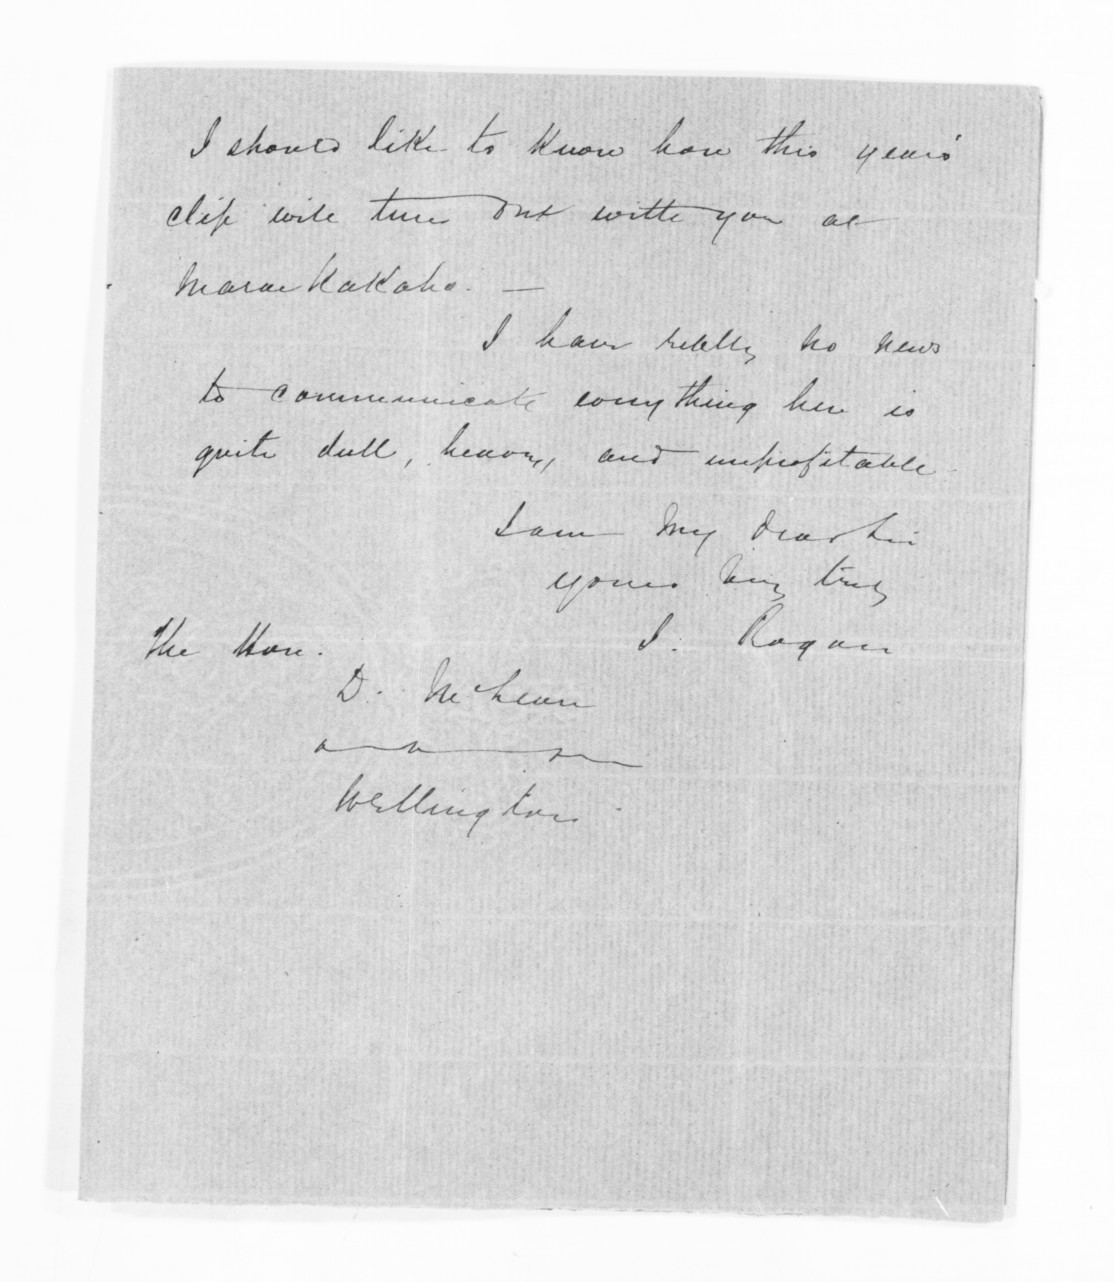 I should like to know how this years'
clip will turn out with you at
Maraekakaho. —
I have really no news
to communicate everything here is
quite dull, heavy, and unprofitable.
I am My dear Sir
yours very truly
J. Rogan
The Hon.
D. McLean
Wellington.